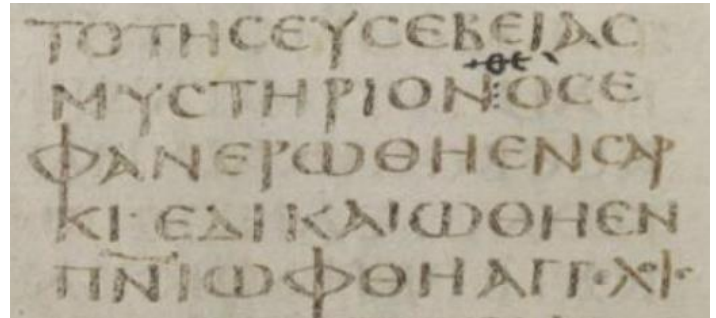 ΤΟΤΗϹΕΥϹΕΒΕΙΑϹ
θε
ΜΥϹΤΗΡΙΟΝ⋮ΟϹΕ
ΦΑΝΕΡΩΘΗΕΝϹΑΡ
ΚΙ·ΕΔΙΚΑΙΩΘΗΕΝ
Π̅Ν̅Ι̅ΩΦΘΗΑΓΓ